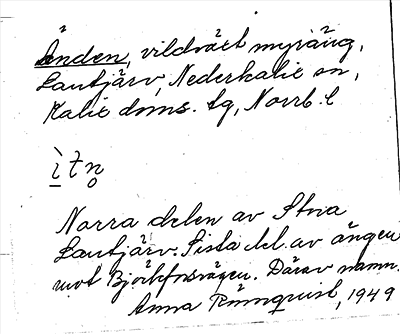 Änden, vildvält myräng,
Lantjärv, Nederkalix sn,
Kalix doms. tg, Norrb. l
ì t n̥
Norra delen av Stora
Lantjärv. Sista del. av ängen
mot Björkforsvägen. Därav namn.
Anna Rönnquist, 1949